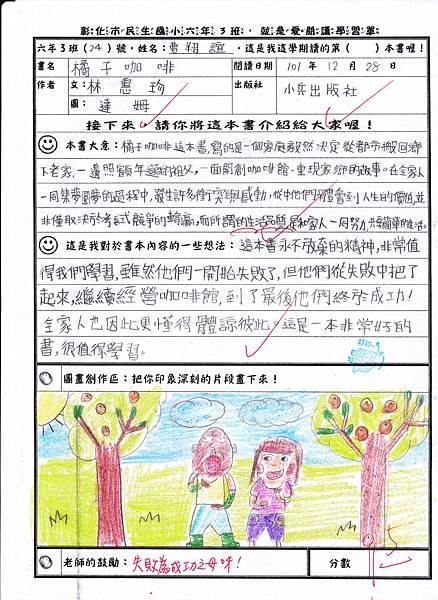 彰化市民生國小六年3班，就是愛閱讀學習單
六年3班(24)號，姓名：曹翔誼，這是我這學期讀的第( )本書喔！
書名 橘子咖啡 閱讀日期 101年12月28日
作者 文：林惠珍 出版社 小兵出版社
圖：達姆
接下來，請你將這本書介紹給大家喔！
本書大意：橘子咖啡這本書，寫的是一個家庭毅然決定從都市搬回鄉
下老家，一邊照顧年邁的祖父，一面開創咖啡館、重現家鄉的故事。在全家人
一同築夢圓夢的過程中，發生許多衝突與感動，從中他們體會到人生的價值並
非僅取決於考試競爭的輸贏，而所謂的生活品質是和家人一同努力、共享簡單的生活。
這是我對於書本內容的一些想法：這本書永不放棄的精神，非常值
得我們學習，雖然他們一開始失敗了，但他們從失敗中把了
起來，繼續經營咖啡館，到了最後他們終於成功！
全家人也因此更懂得體諒彼此。這是一本非常好的
書，很值得學習。
圖畫創作區：把你印象深刻的片段畫下來！
老師的鼓勵：失敗為成功之母呀！ 分數